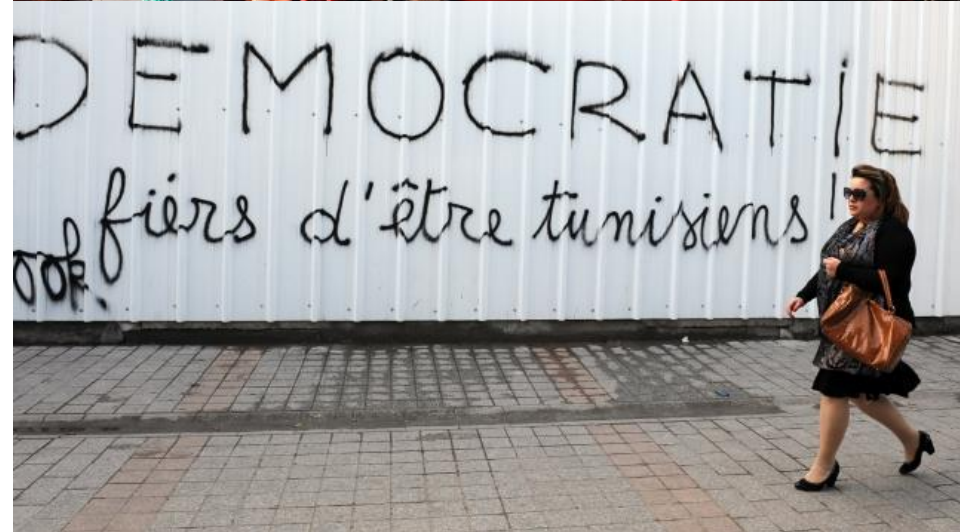 DEMOCRATIE
fiers d'être tunisiens!
ook.